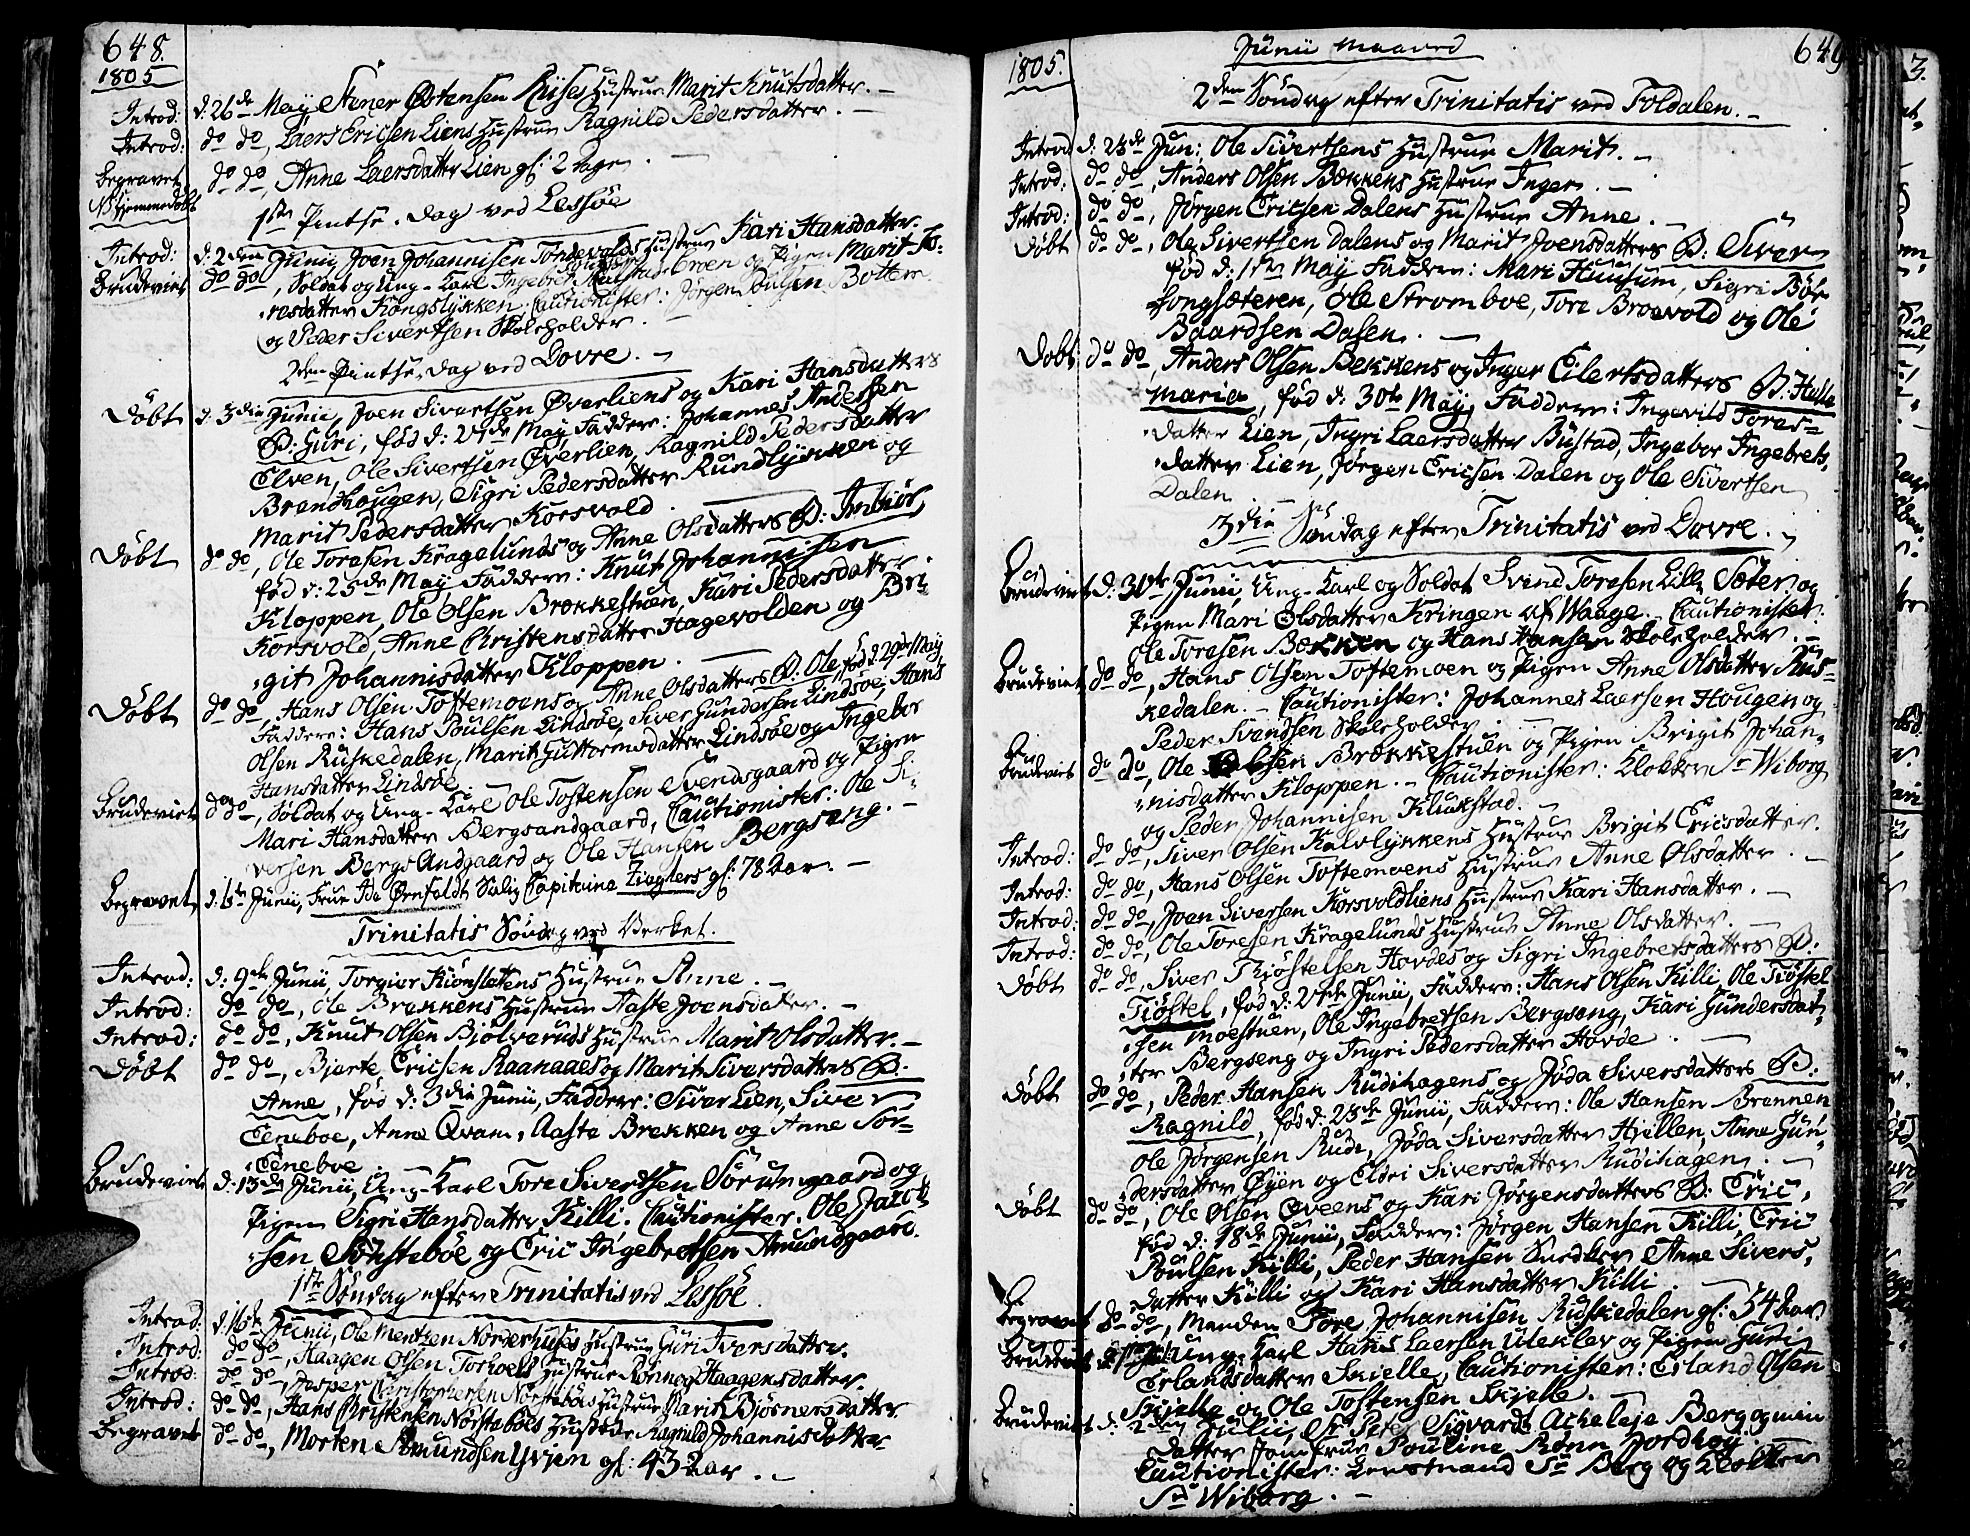 648.
1805
Introd: d: 26de May Stener Østensen Rüses Hustrue Marit Knutsdatter. -
Introd: do do, Laers Ericsen Liens Hustrue Ragnild Pedersdatter.
Begravet do do, Anne Laersdatter Lien gl: 2 Dage.
NB Hjemmedøbt
1ste Pintse-Dag ved Lessøe
Introd: d: 2den Junii Joen Johannisen Tøndevolds Hustrue Kari Hansdatter.
Brudeviet do do, Soldat og Ung-Karl Ingebret broen og Pigen Marit To-
resdatter Kongslykken. Cautionister: Jørgen Poulsen Bottem
og Peder Sivertsen Skoleholder.
2den Pintse-Dag ved Dovre.
Døbt d: 3die Junii, Joen Sivertsen Øverliens og Kari Hansdatters
B: Guri, fød d: May Faddere: Johannes Andersen
Elven, Ole Sivertsen Øverlien, Ragnild Pedersdatter
Brendhougen, Sigri Pedersdatter Rundlykken og
Marit Pedersdatter Korsvold.
Døbt do do, Ole Toresen Kragelunds og Anne Olsdatters B:
fød d: 25de May Faddere: Knut Johannisen
Kloppen, Ole Olsen Brækkestuen, Kari Pedersdatter
Korsvold, Anne Christensdatter Hagevolden og Bri-
git Johannisdatter Kloppen.
Døbt do do, Hans Olsen Toftemoens og Anne Olsdatters B: Ole fød d: 29de May
Faddere: Hans Poulsen Lindsøe, Siver Gundersen Lindsøe, Hans
Olsen Rüskedalen, Marit Guttormsdatter Lindsøe og Ingebor
Hansdatter Lindsøe
Brudeviet do do, Soldat og Ung-Karl Ole Tostensen Svendsgaard og Pigen
Mari Hansdatter Bergsandgaard, Cautionister: Ole Si-
versen Bergs Andgaard og Ole Hansen Bergseng. -
Begravet d: 6te Junii, Frue Ida Ørnfeldt Salig Capitaine Zieglers gl: 78 Aar. -
Trinitatis Søndag ved Verket.
Introd: d: 9de Junii, Torgier Kionslatens Hustrue Anne. -
Introd: do do, Ole Brækkens Hustrue Aaste Joensdatter. -
Introd: do do, Knut Olsen Bjølveruds Hustrue Marit Olsdatter. -
Døbt do do, Bjerte Ericsen Raanaaes og Marit Siversdatters B:
Anne, fød d: 3die Junii, Faddere: Siver Lien, Siver
Eeneboe, Anne Qvam, Aaste Brekken og Anne Sør-
Eeneboe
Brudeviet d: 13de Junii, Ung-Karl Tore Sivertsen Sørumgaard og
Pigen Sigri Hansdatter Killi. Cautionister: Ole Jacob-
sen Sønsteböe og Eric Ingebretsen Amundgaard.
1ste Søndag efter Trinitatis ved Lessøe
Introd: d: 16de Junii, Ole Mentzen Norderhuses Hustrue Guri Iversdatter.
Introd: do do, Haagen Olsen Torhoels Hustrue Rønnog Haagensdatter.
Introd: do do, Jesper Christophersen Nørstebøes Hustrue Marit Bjørnersdatter
Introd: do do, Hans Christensen Nørstebøes Hustrue Ragnild Johannisdatter
Begravet do do, Morten Amundsen gl: 43 Aar. -
1805. Junii Maaned 649
2den Søndag efter Trinitatis ved Foldalen. -
Introd d: 23de Jun: Ole Sivertsens Hustrue Marit. -
Introd: do do, Anders Olsen Bækkens Hustrue Inger. -
Introd: do do, Jørgen Ericsen Dalens Hustrue Anne.
Døbt do do, Ole Sivertsen Dalens og Marit Joensdatters B: Siver
fød d: 1ste May Faddere: Mari Huusum, Sigri Bör-
kongsæteren, Ole Stromboe, Tore Broevold og Ole
Baardsen Dalen.
Døbt do do, Anders Olsen Bekkens og Inger Eilertsdatters B:
Maria, fød d: 30te May, Faddere: Ingevild Tores-
datter Lien, Ingri Laersdatter Büstad, Ingebor Ingebrets-
datter Lien, Jørgen Ericsen Dalen og Ole Sivertsen
Dalen
3die Søndag efter Trinitatis ved Dovre.
Brudeviet d: 30te Junii, Ung-Karl og Soldat Svend Toresen Lille Sæter og
Pigen Mari Olsdatter Kringen af Waage. - Cautionister:
Ole Toresen Bækken og Hans Hansen Skoleholder. -
Brudeviet do do, Hans Olsen Toftemoen og Pigen Anne Olsdatter Rüs-
kedalen. - Cautionister: Johannes Laersen Hougen og
Peder Svendsen Skoleholder.
Brudeviet do do, Ole Olsen Brækkestuen og Pigen Brigit Johan-
nisdatter Kloppen. - Cautionister: Klokker Sr Wiborg
og Peder Johannisen Klukstad. -
Introd: do do, Siver Olsen Kalvlykkens Hustrue Brigit Ericsdatter.
Introd: do do, Hans Olsen Toftemoens Hustrue Anne Olsdatter. -
Introd: do do, Joen Siversen Korsvoldliens Hustrue Kari Hansdatter. -
Introd: do do, Ole Toresen Kragelunds Hustrue Anne Olsdatter -
Døbt do do, Siver Thiøstelsen Hovdes og Sigri Ingebretsdatters B.
Tiøstel, fød d: Junii, Faddere: Hans Olsen Killi, Ole Tiøstel-
sen Moestuen, Ole Ingebretsen Bergseng, Kari Gundersdat-
ter Bergseng og Ingri Pedersdatter Hovde.
Døbt do do, Peder Hansen Rudihagens og Jøda Siversdatters B:
Ragnild, fød d: 23de Junii, Faddere: Ole Hansen Brennen
Ole Jørgensen Rude, Jøda Siversdatter Hjellen, Anne Gun-
dersdatter Øyen og Eldri Siversdatter Rudihagen. -
Døbt do do, Ole Olsen Øveens og Kari Jørgensdatters B: Eric,
fød d: 18de Junii, Faddere: Jørgen Hansen Killi, Eric
Poulsen Killi, Peder Hansen Snedker, Anne Sivers-
datter Killi og Kari Hansdatter Killi.
Begravet do do, Manden Tore Johannisen Rüskedalen gl: 54 Aar
Brudeviet Ung-Karl Hans Laersen Uleklev og Pigen Guri
Erlandsdatter Skielle, Cautionister: Erland Olsen
Skielle og Ole Tostensen Skielle.
Brudeviet d: Julii, Sr Peter Sigvardt Acheleje Berg og min
datter Jomfrue Pouline Rønn Jordhøy
Cautionister: Leutnand Sr Berg og Klokker
Sr Wiborg. -